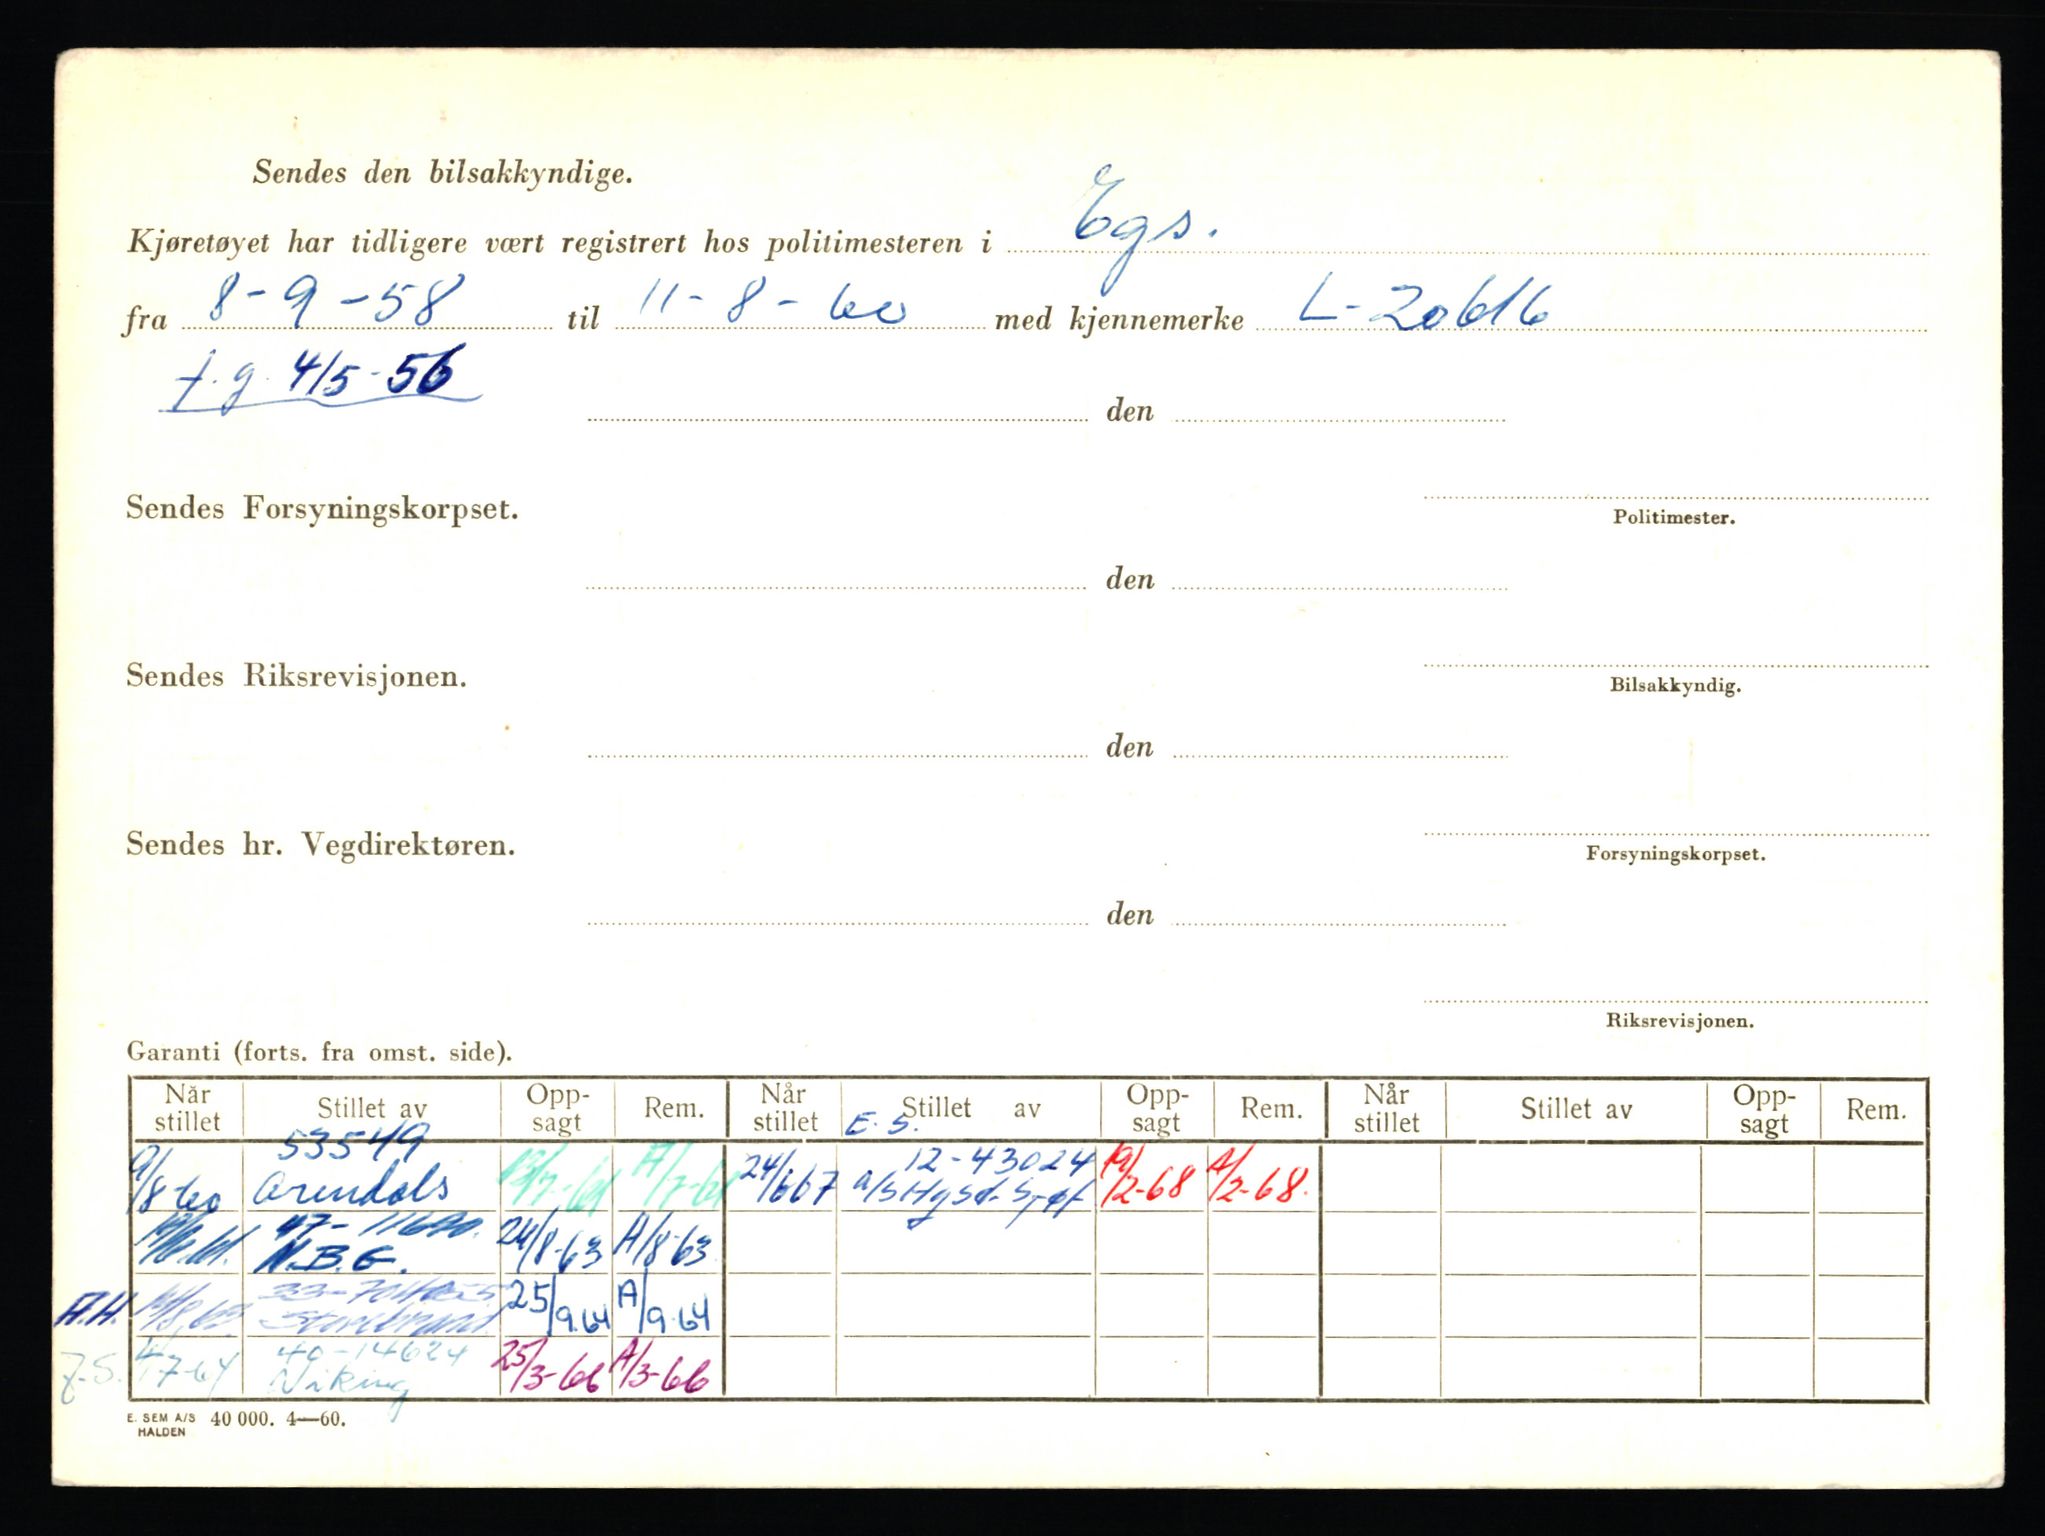 Sendes den bilsakkyndige.
Kjøretøyet har tidligere vært registrert hos politimesteren i Egs.
fra 8-9-58 til 11-8-60 med kjennemerke L-20616
f.g. 4/5-56
den
Sendes Forsyningskorpset.
Politimester.
den
Sendes Riksrevisjonen.
Bilsakkyndig.
den
Sendes hr. Vegdirektøren.
Forsyningskorpset.
den
Riksrevisjonen.
Garanti (forts. fra omst. side).
Når stillet Stillet av Opp-sagt Rem. Når stillet Stillet av Opp-sagt Rem. Når stillet Stillet av Opp-sagt Rem.
53549 E. S.
9/8-60 Arendals A/7-61 24/667 12-43024 19/2-68 A/2-68.
47- N.B.G. 24/8-63 A/8-63
A.H. Storebrand 25/9.64 A/9.64
40-14624 Viking 25/3-66 A/3-66
E. SEM A/S HALDEN 40 000. 4—60.